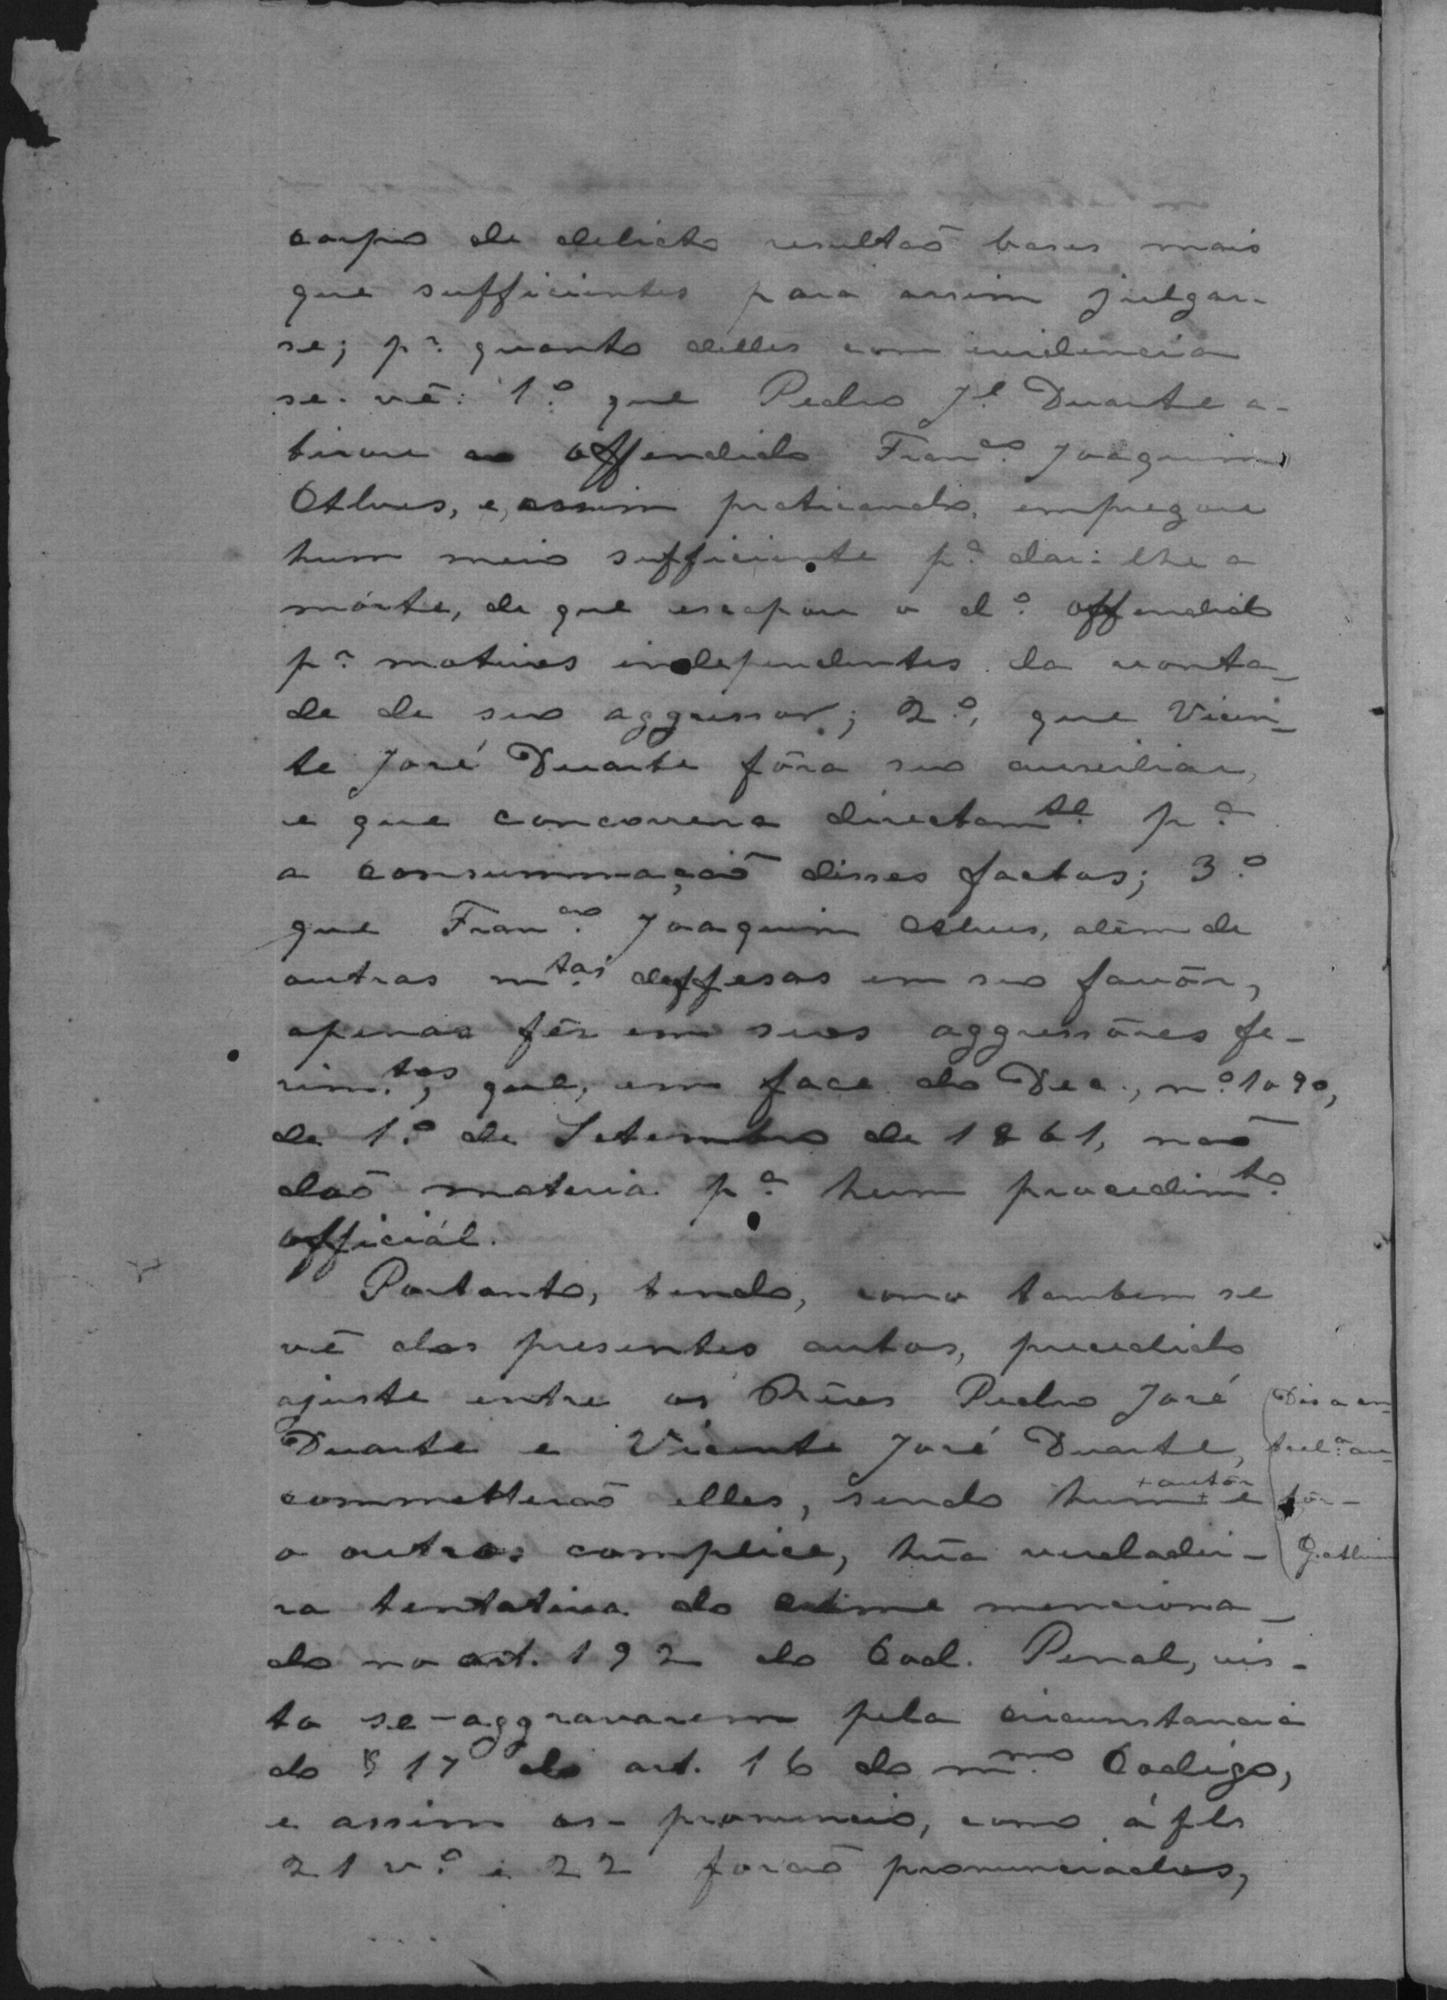 corpo de delicto resultaõ bases mais
que sufficientes para assim julgar-
se; pr. quanto delles com evidencia
se-vê: 1º que Pedro Jé Duarte a-
tirou ao offendido Franco. Joaquim
Alves, e, assim praticando, empregou
hum meio sufficiente pa. dar-lhe a
mórte, de que escapou o do. offendido
pr. motivos independentes da vonta-
de de seo aggressor; 2º, que Vicen-
te José Duarte fôra seo auxiliar,
e que concorrera directamte. pa.
a consummaçaõ disses factos; 3º
que Franco. Joaquim Alves, alêm de
outras mtas. deffesas em seo favôr,
apenas fêz em seos aggressôres fe-
rimtos., que, em face do Dec., nº 1090,
de 1º de Setembro de 1861, naõ
daõ materia pa. hum procedimto.
officiál.
Portanto, tendo, como tambem se
vê dos presentes autos, precedido
ajuste entre os Rêos Pedro José
Duarte e Vicente José Duarte,
commetteraõ elles, sendo hum + autôr + e
o outro complice, hũa verdadei-
ra tentativa do crime menciona-
do no art. 192 do Cod. Penal, vis-
to se-aggravarem pela circunstancia
do § 17 do art. 16 do mmo. Codigo,
e assim os-pronuncio, como á fls
21 vº e 22 foraõ pronunciados,
Diz a en-
trelª. au-
tôr-